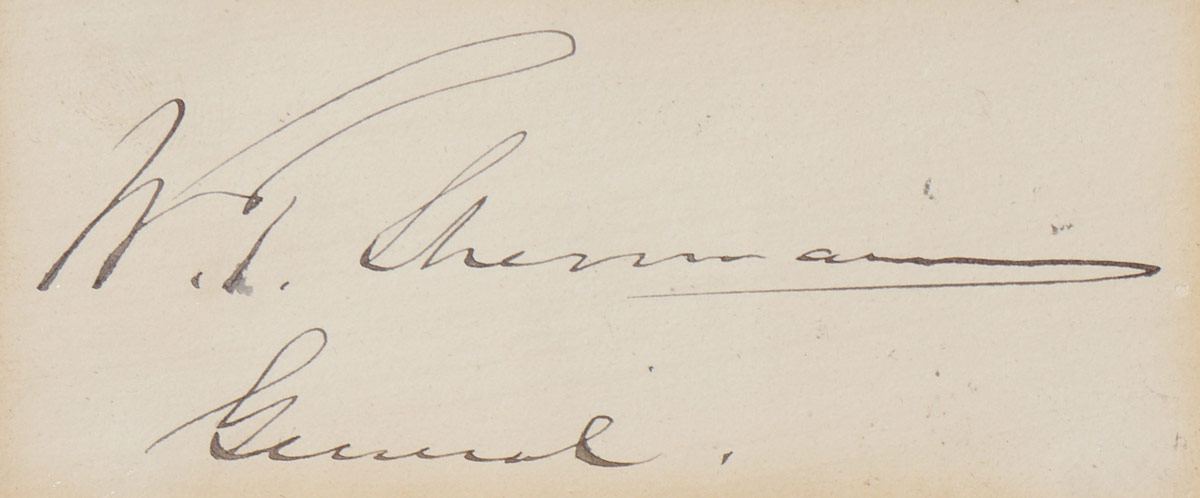 W. T. Sherman
General.